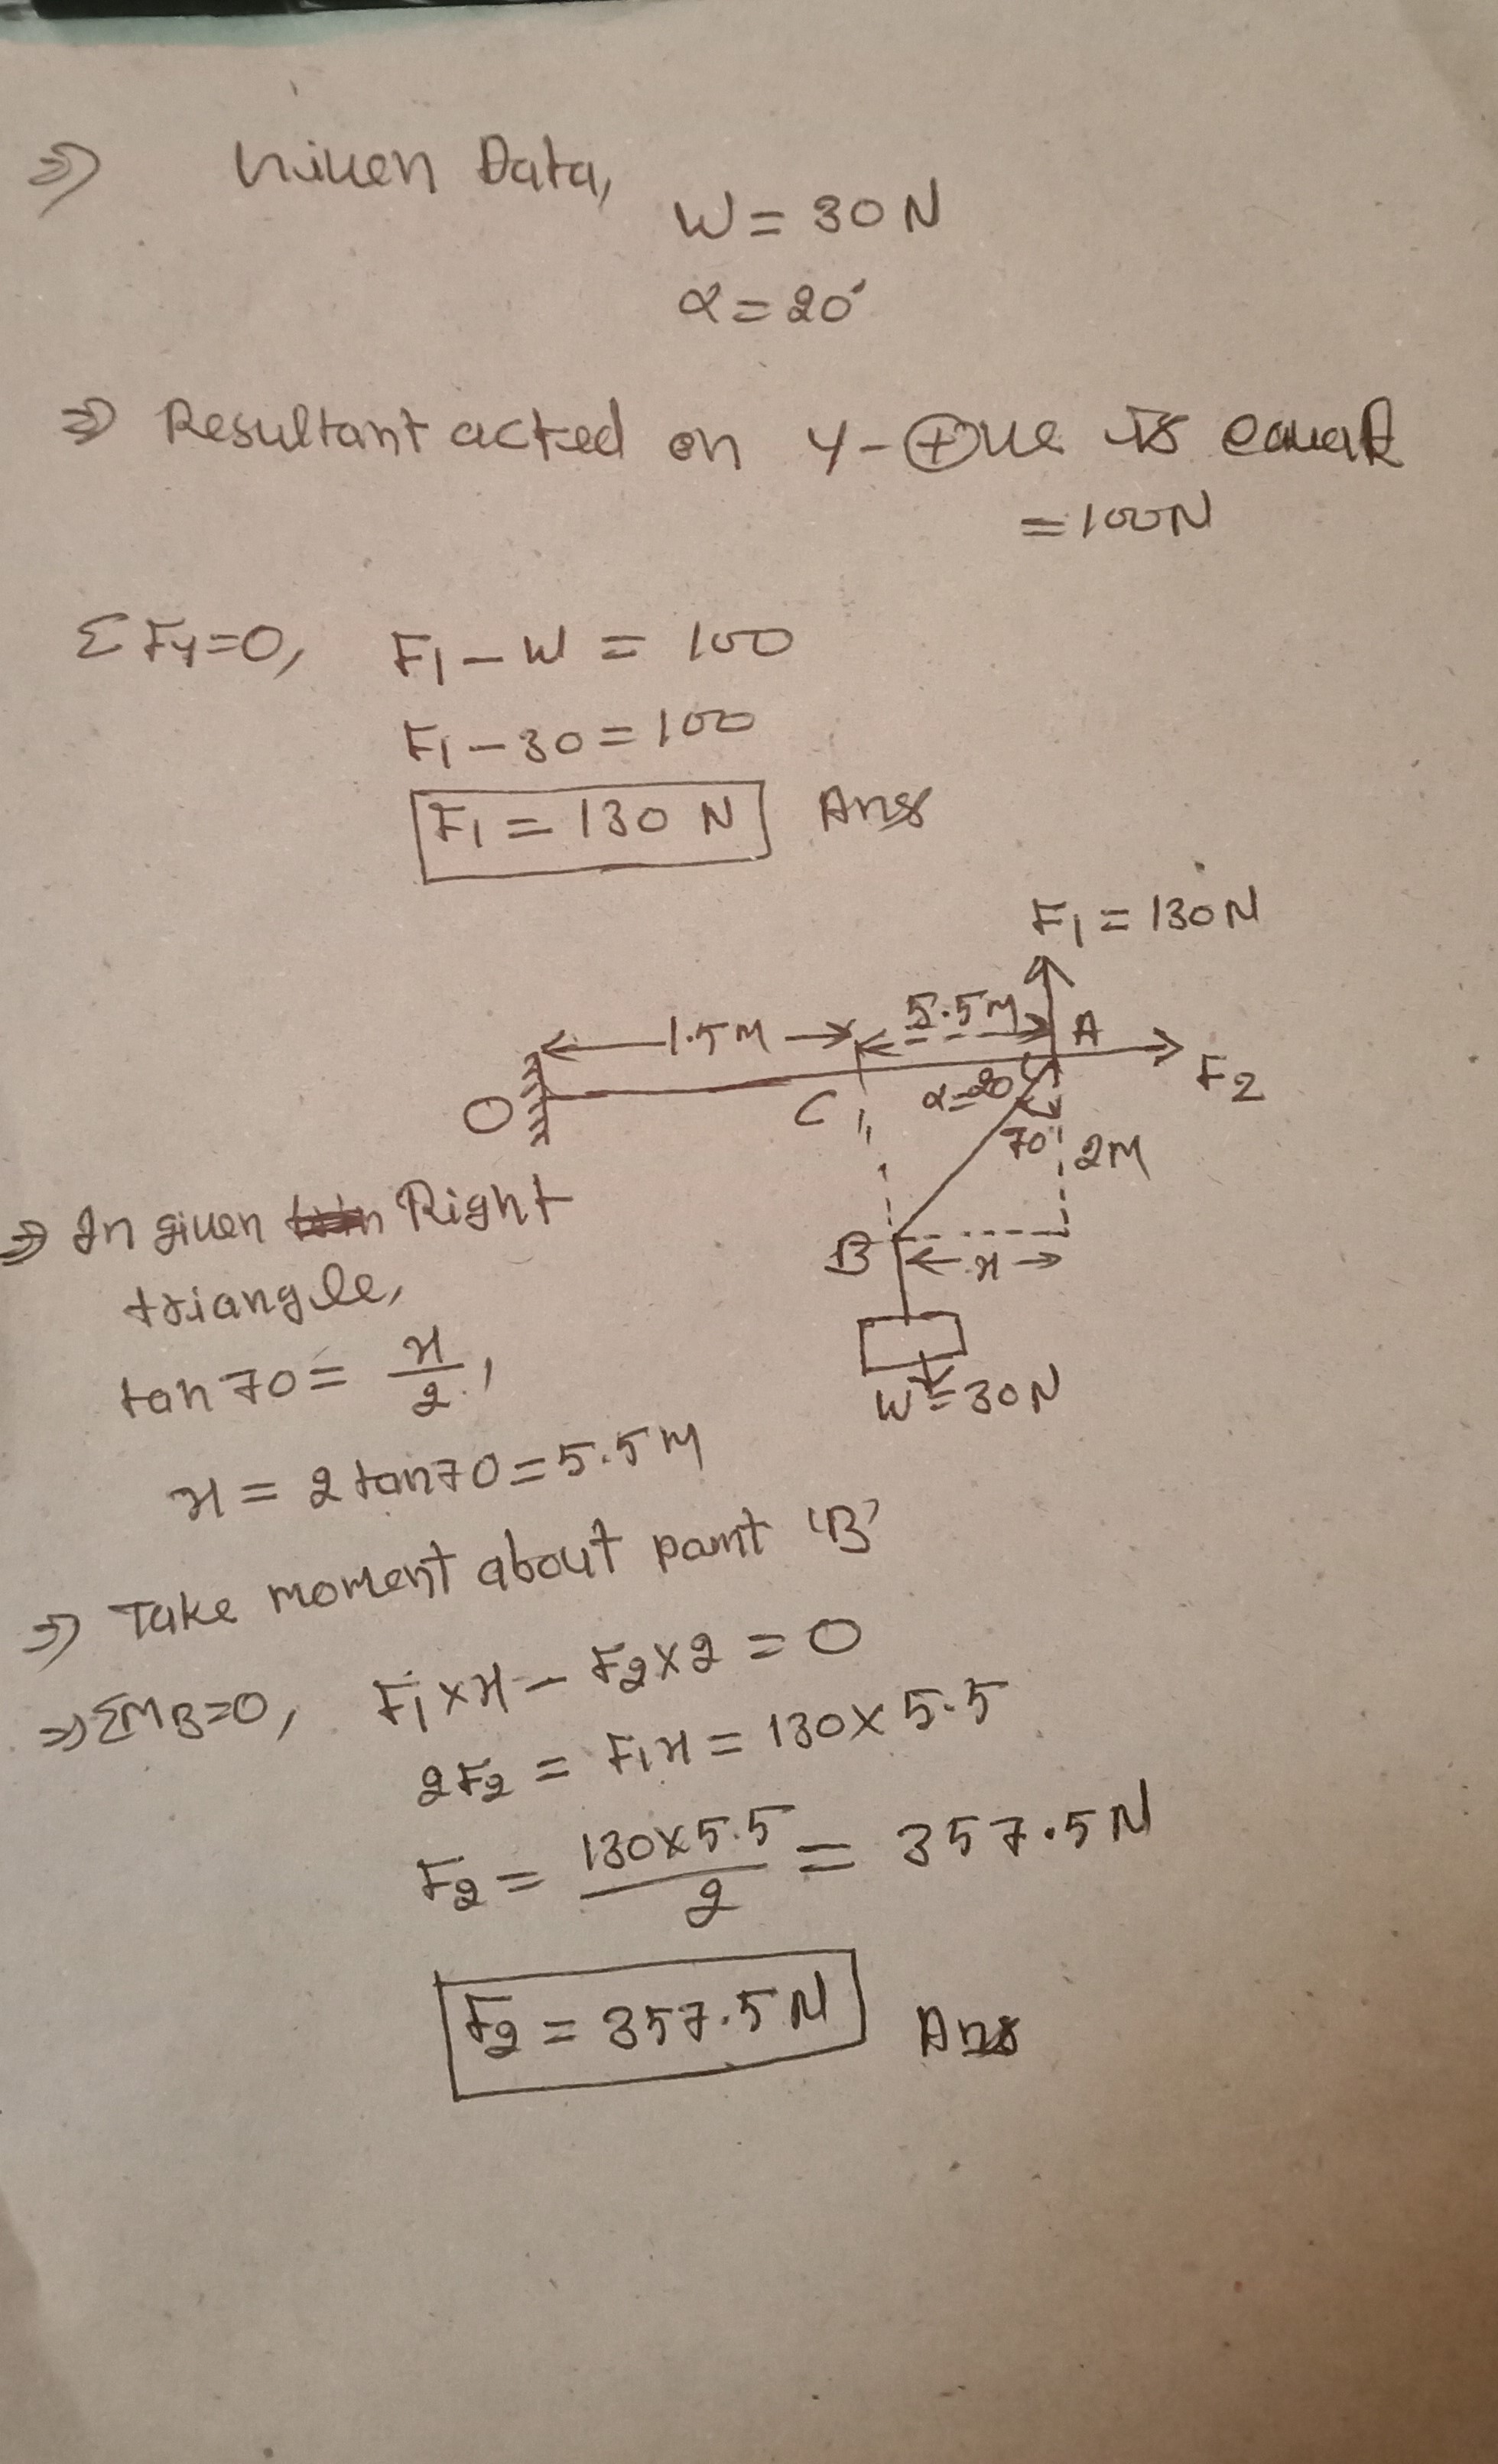 ⇒ Given Data,
W = 30 N
α = 20°
⇒ Resultant acted on y-⊕ve is equal
= 100N
ΣFy=0, F1 – W = 100
F1 – 30 = 100
F1 = 130 N Ans
F1 = 130N
1.5M 5.5M A
O C α=20 F2
70° 2M
B x
W=30N
⇒ In given Right
triangle,
tan 70 = x/2,
x = 2 tan70 = 5.5M
⇒ Take moment about point 'B'
⇒ ΣMB=0, F1 × x – F2×2 = 0
2F2 = F1x = 130 × 5.5
F2 = 130×5.5/2 = 357.5N
F2 = 357.5N Ans